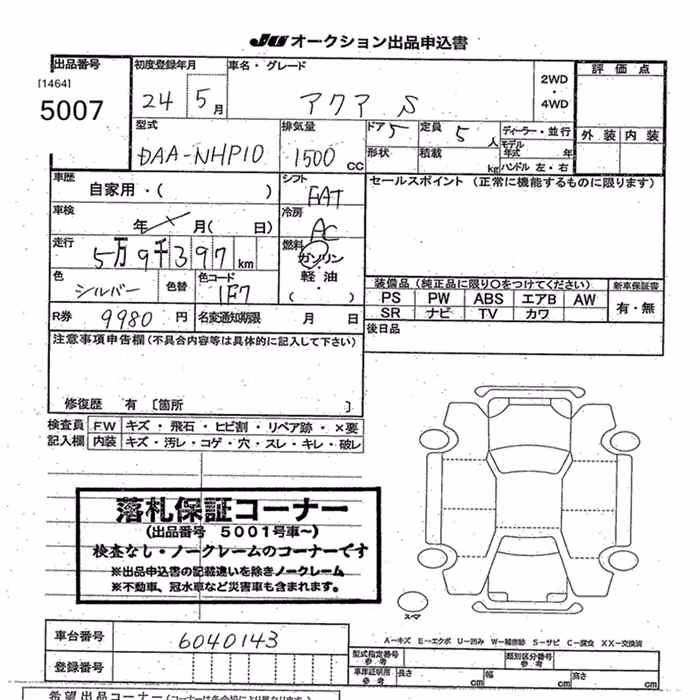 JU オークション出品申込書
出品番号
[1464]
5007
初度登録年月
24 5月
車名・グレード
アクア S
2WD
・
4WD
評価点
外装 内装
型式
DAA-NHP10
排気量
1500 CC
ドア 5
定員 5人
ディーラー・並行
モデル年式 年
形状
積載 kg
ハンドル 左・右
車歴
自家用・( )
シフト
FAT
セールスポイント (正常に機能するものに限ります)
車検
年 月( 日)
冷房
AC
走行
5万9千397km
燃料
ガソリン
・
軽油
( )
色
シルバー
色替
色コード
1F7
装備品 (純正品に限り〇をつけてください)
新車保証書
PS PW ABS エアB AW
SR ナビ TV カワ
有・無
R券 9980 円
名変通知期限 月 日
後日品
注意事項申告欄(不具合内容等は具体的に記入して下さい)
修復歴 有 [箇所 ]
検査員
記入欄
FW キズ・飛石・ヒビ割・リペア跡・×要
内装 キズ・汚レ・コゲ・穴・スレ・キレ・破レ
落札保証コーナー
(出品番号 5001号車~)
検査なし・ノークレームのコーナーです
※出品申込書の記載違いを除きノークレーム
※不動車、冠水車など災害車も含まれます。
スペア
A-キズ E-エクボ U-凹み W-補修跡 S-サビ C-腐食 XX-交換済
車台番号
6040143
登録番号
型式指定番号
参考
類別区分番号
参考
車庫証明用
参考
長さ cm
幅 cm
高さ cm
希望出品コーナー